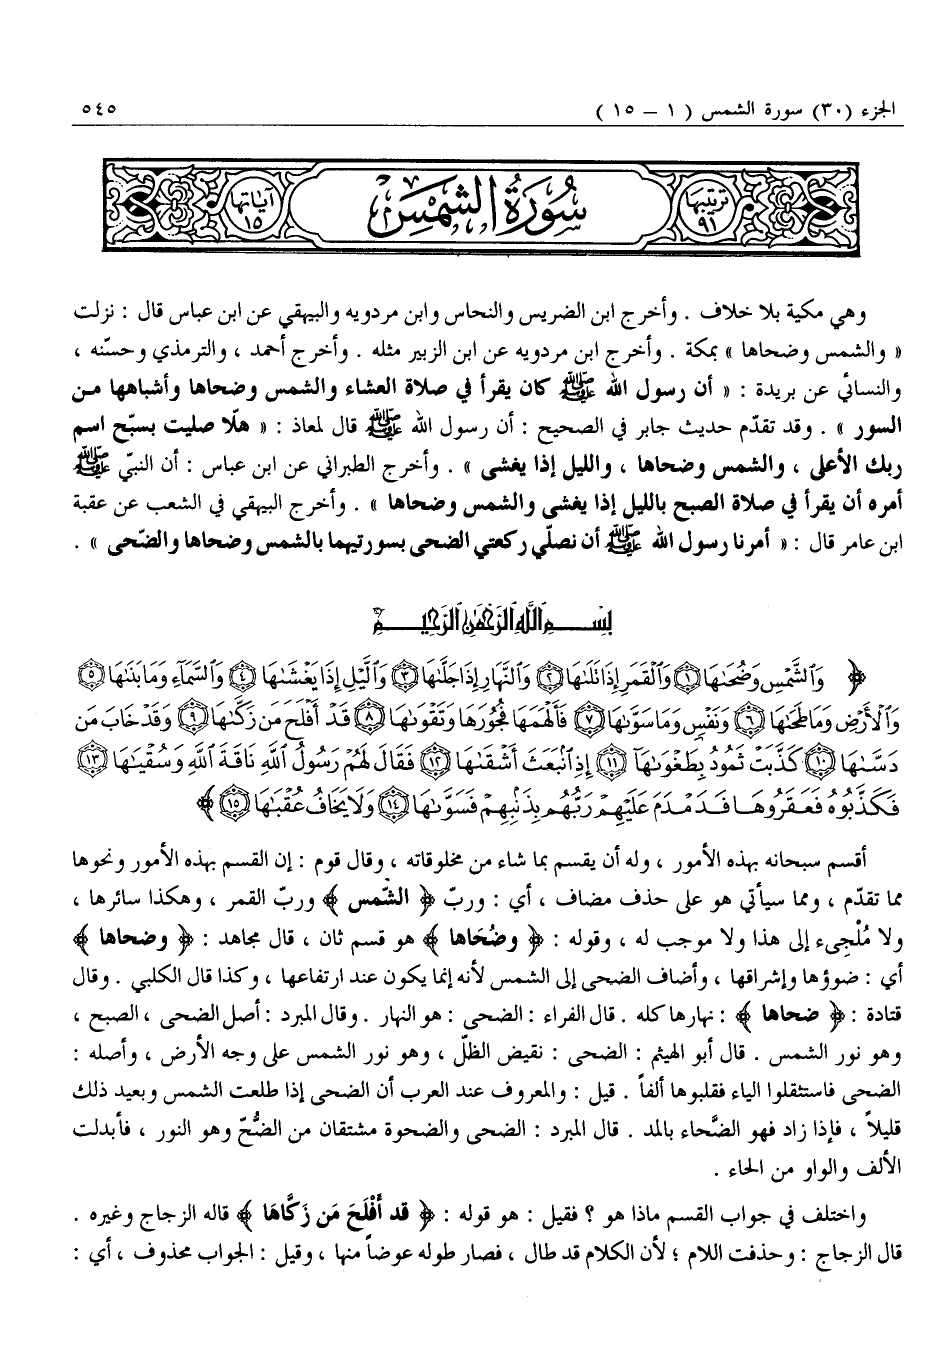 الجزء (٣٠) سورة الشمس ( ١ – ١٥ ) ٥٤٥
ترتيبها ٩١ سُورَةُ الشَّمْسِ آياتها ١٥
وهي مكية بلا خلاف . وأخرج ابن الضريس والنحاس وابن مردويه والبيهقي عن ابن عباس قال : نزلت
« والشمس وضحاها » بمكة . وأخرج ابن مردويه عن ابن الزبير مثله . وأخرج أحمد ، والترمذي وحسّنه ،
والنسائي عن بريدة : « أن رسول الله ﷺ كان يقرأ في صلاة العشاء والشمس وضحاها وأشباهها من
السور » . وقد تقدّم حديث جابر في الصحيح : أن رسول الله ﷺ قال لمعاذ : « هلّا صليت بسبّح اسم
ربك الأعلى ، والشمس وضحاها ، والليل إذا يغشى » . وأخرج الطبراني عن ابن عباس : أن النبيّ ﷺ
أمره أن يقرأ في صلاة الصبح بالليل إذا يغشى والشمس وضحاها » . وأخرج البيهقي في الشعب عن عقبة
ابن عامر قال : « أمرنا رسول الله ﷺ أن نصلّي ركعتي الضحى بسورتيهما بالشمس وضحاها والضّحى » .
بِسْمِ اللَّهِ الرَّحْمَٰنِ الرَّحِيمِ
﴿ وَٱلشَّمْسِ وَضُحَىٰهَا ۝١ وَٱلْقَمَرِ إِذَا تَلَىٰهَا ۝٢ وَٱلنَّهَارِ إِذَا جَلَّىٰهَا ۝٣ وَٱلَّيْلِ إِذَا يَغْشَىٰهَا ۝٤ وَٱلسَّمَآءِ وَمَا بَنَىٰهَا ۝٥
وَٱلْأَرْضِ وَمَا طَحَىٰهَا ۝٦ وَنَفْسٍ وَمَا سَوَّىٰهَا ۝٧ فَأَلْهَمَهَا فُجُورَهَا وَتَقْوَىٰهَا ۝٨ قَدْ أَفْلَحَ مَن زَكَّىٰهَا ۝٩ وَقَدْ خَابَ مَن
دَسَّىٰهَا ۝١٠ كَذَّبَتْ ثَمُودُ بِطَغْوَىٰهَآ ۝١١ إِذِ ٱنۢبَعَثَ أَشْقَىٰهَا ۝١٢ فَقَالَ لَهُمْ رَسُولُ ٱللَّهِ نَاقَةَ ٱللَّهِ وَسُقْيَٰهَا ۝١٣
فَكَذَّبُوهُ فَعَقَرُوهَا فَدَمْدَمَ عَلَيْهِمْ رَبُّهُم بِذَنۢبِهِمْ فَسَوَّىٰهَا ۝١٤ وَلَا يَخَافُ عُقْبَٰهَا ۝١٥ ﴾
أقسم سبحانه بهذه الأمور ، وله أن يقسم بما شاء من مخلوقاته ، وقال قوم : إن القسم بهذه الأمور ونحوها
مما تقدّم ، ومما سيأتي هو على حذف مضاف ، أي : وربّ ﴿ الشّمس ﴾ وربّ القمر ، وهكذا سائرها ،
ولا مُلْجِىء إلى هذا ولا موجب له ، وقوله : ﴿ وضُحَاها ﴾ هو قسم ثان ، قال مجاهد : ﴿ وضحاها ﴾
أي : ضوؤها وإشراقها ، وأضاف الضحى إلى الشمس لأنه إنما يكون عند ارتفاعها ، وكذا قال الكلبي . وقال
قتادة : ﴿ ضحاها ﴾ : نهارها كله . قال الفراء : الضحى : هو النهار . وقال المبرد : أصل الضحى ، الصبح ،
وهو نور الشمس . قال أبو الهيثم : الضحى : نقيض الظلّ ، وهو نور الشمس على وجه الأرض ، وأصله :
الضحى فاستثقلوا الياء فقلبوها ألفاً . قيل : والمعروف عند العرب أن الضحى إذا طلعت الشمس وبعيد ذلك
قليلاً ، فإذا زاد فهو الضَّحاء بالمد . قال المبرد : الضحى والضحوة مشتقان من الضُّحّ وهو النور ، فأبدلت
الألف والواو من الحاء .
واختلف في جواب القسم ماذا هو ؟ فقيل : هو قوله : ﴿ قد أَفْلَحَ مَن زَكَّاهَا ﴾ قاله الزجاج وغيره .
قال الزجاج : وحذفت اللام ؛ لأن الكلام قد طال ، فصار طوله عوضاً منها ، وقيل : الجواب محذوف ، أي :